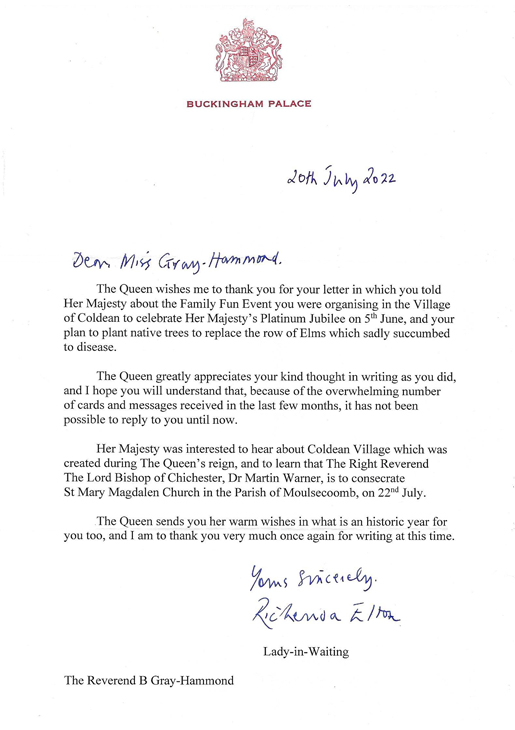 BUCKINGHAM PALACE
20th July 2022
Dear Miss Gray-Hammond.
The Queen wishes me to thank you for your letter in which you told
Her Majesty about the Family Fun Event you were organising in the Village
of Coldean to celebrate Her Majesty's Platinum Jubilee on 5th June, and your
plan to plant native trees to replace the row of Elms which sadly succumbed
to disease.
The Queen greatly appreciates your kind thought in writing as you did,
and I hope you will understand that, because of the overwhelming number
of cards and messages received in the last few months, it has not been
possible to reply to you until now.
Her Majesty was interested to hear about Coldean Village which was
created during The Queen's reign, and to learn that The Right Reverend
The Lord Bishop of Chichester, Dr Martin Warner, is to consecrate
St Mary Magdalen Church in the Parish of Moulsecoomb, on 22nd July.
The Queen sends you her warm wishes in what is an historic year for
you too, and I am to thank you very much once again for writing at this time.
Yours sincerely.
Richenda Elton
Lady-in-Waiting
The Reverend B Gray-Hammond